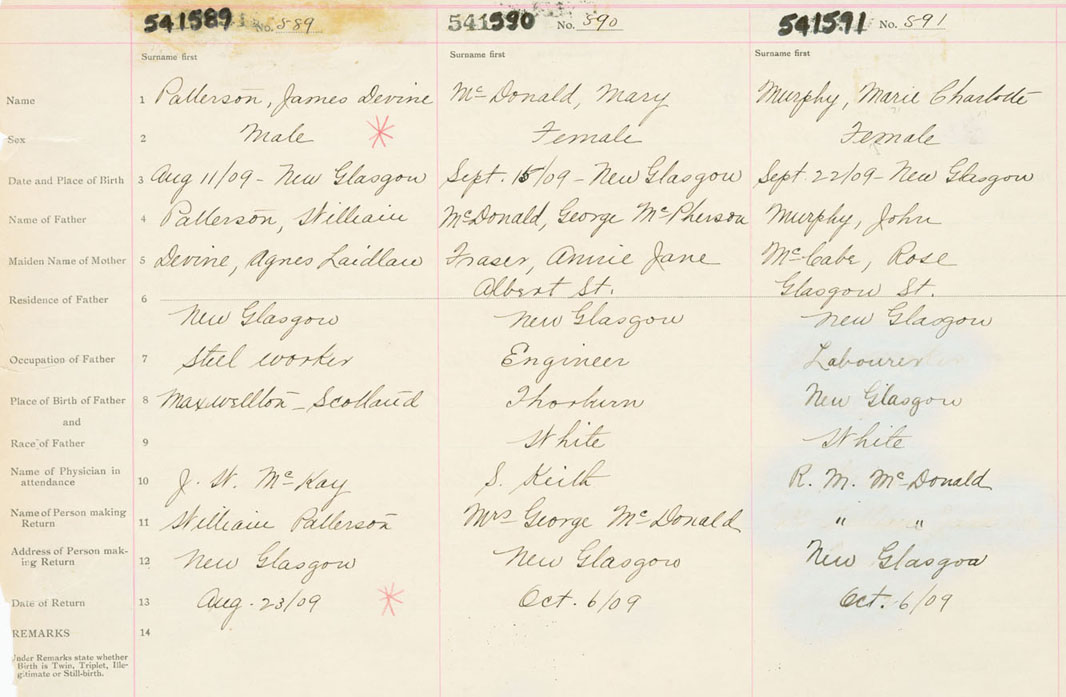 541589 No. 589 541590 No. 590 541591 No. 591
Surname first Surname first Surname first
Name 1 Patterson, James Devine McDonald, Mary Murphy, Marie Charlotte
Sex 2 Male Female Female
Date and Place of Birth 3 Aug 11/09 - New Glasgow Sept. 15/09 - New Glasgow Sept 22/09 - New Glasgow
Name of Father 4 Patterson, William McDonald, George McPherson Murphy, John
Maiden Name of Mother 5 Devine, Agnes Laidlaw Fraser, Annie Jane McCabe, Rose
Residence of Father 6 Albert St. Glasgow St.
New Glasgow New Glasgow New Glasgow
Occupation of Father 7 Steel worker Engineer Labourer
Place of Birth of Father 8 Maxwellton - Scotland Thorburn New Glasgow
and
Race of Father 9 White White
Name of Physician in
attendance 10 J. W. McKay S. Keith R. M. McDonald
Name of Person making
Return 11 William Patterson Mrs George McDonald " "
Address of Person mak-
ing Return 12 New Glasgow New Glasgow New Glasgow
Date of Return 13 Aug. 23/09 Oct. 6/09 Oct. 6/09
REMARKS 14
Under Remarks state whether
Birth is Twin, Triplet, Ille-
gitimate or Still-birth.